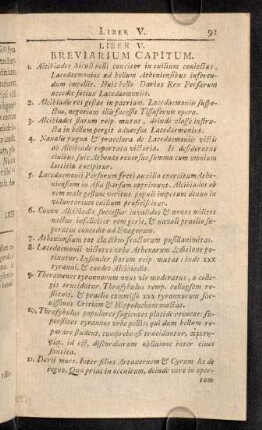 LIBER V. 91
LIBER V.
BREVIARIUM CAPITUM.
1. Alcibiades Siculi belli concitor in exilium concessus,
Lacedaemonios ad bellum Atheniensibus inferen-
dum impellit. Huic bello Darius Rex Persarum
accedit socius Lacedaemoniis.
2. Alcibiadis res gestae in patriam. Lacedaemoniis suspe-
ctus,
3. Alcibiades statum reip. mutat, deinde classe instru-
cta in bellum pergit adversus Lacedaemonios.
4. Navalis pugna & praeclara de Lacedaemoniis victis
ab Alcibiade reportata victoria. Is desideratus
civibus suis Athenas reversus summa cum omnium
laetitia excipitur.
5. Lacedaemonii Persarum freti auxilio exercitum Athe-
niensium in Asia sparsum opprimunt. Alcibiades ob
rem male gestam veritus populi impetum denuo in
voluntarium exilium proficiscitur.
6. Conon Alcibiadis successor invalidos & novos milites
nactus infeliciter rem gerit, & navali praelio su-
peratus concedit ad Evagoram.
7. Atheniensium tot cladibus fractorum
8. Lacedaemonii victores urbe Athenarum
riantur. Lysander statum reip. mutat inde xxx
tyranni, & caedes Alcibiadis.
9. Theramenes tyrannorum unus vir moderatus, a colle-
gis trucidatur. Thrasybulus remp. collapsam re-
stituit, & praelio commisso xxx tyrannorum
Critiam & Hippolochum mactat.
10. Thrasybulus populares fugientes placide revocat:
tyrannos urbe pulsos qui dum bellum re-
parare student, comprehensi trucidantur,
id est, discordiarum oblivione inter cives
sancita.
11. Darii mors. Inter filios Artaxerxem & Cyrum lis de
regno. Qua primo in occultum, deinde vero in aper-
tum